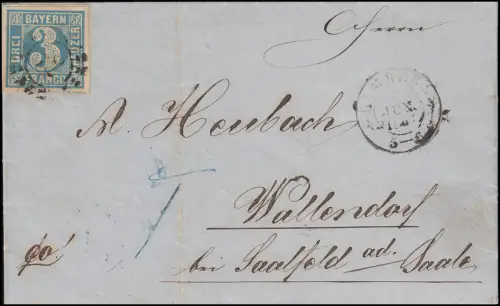 BAYERN
DREI
KREUZER
FRANCO
3
Herrn
JUN.
5-6
A. Heubach
Wallendorf
bei Saalfeld ad. Saale